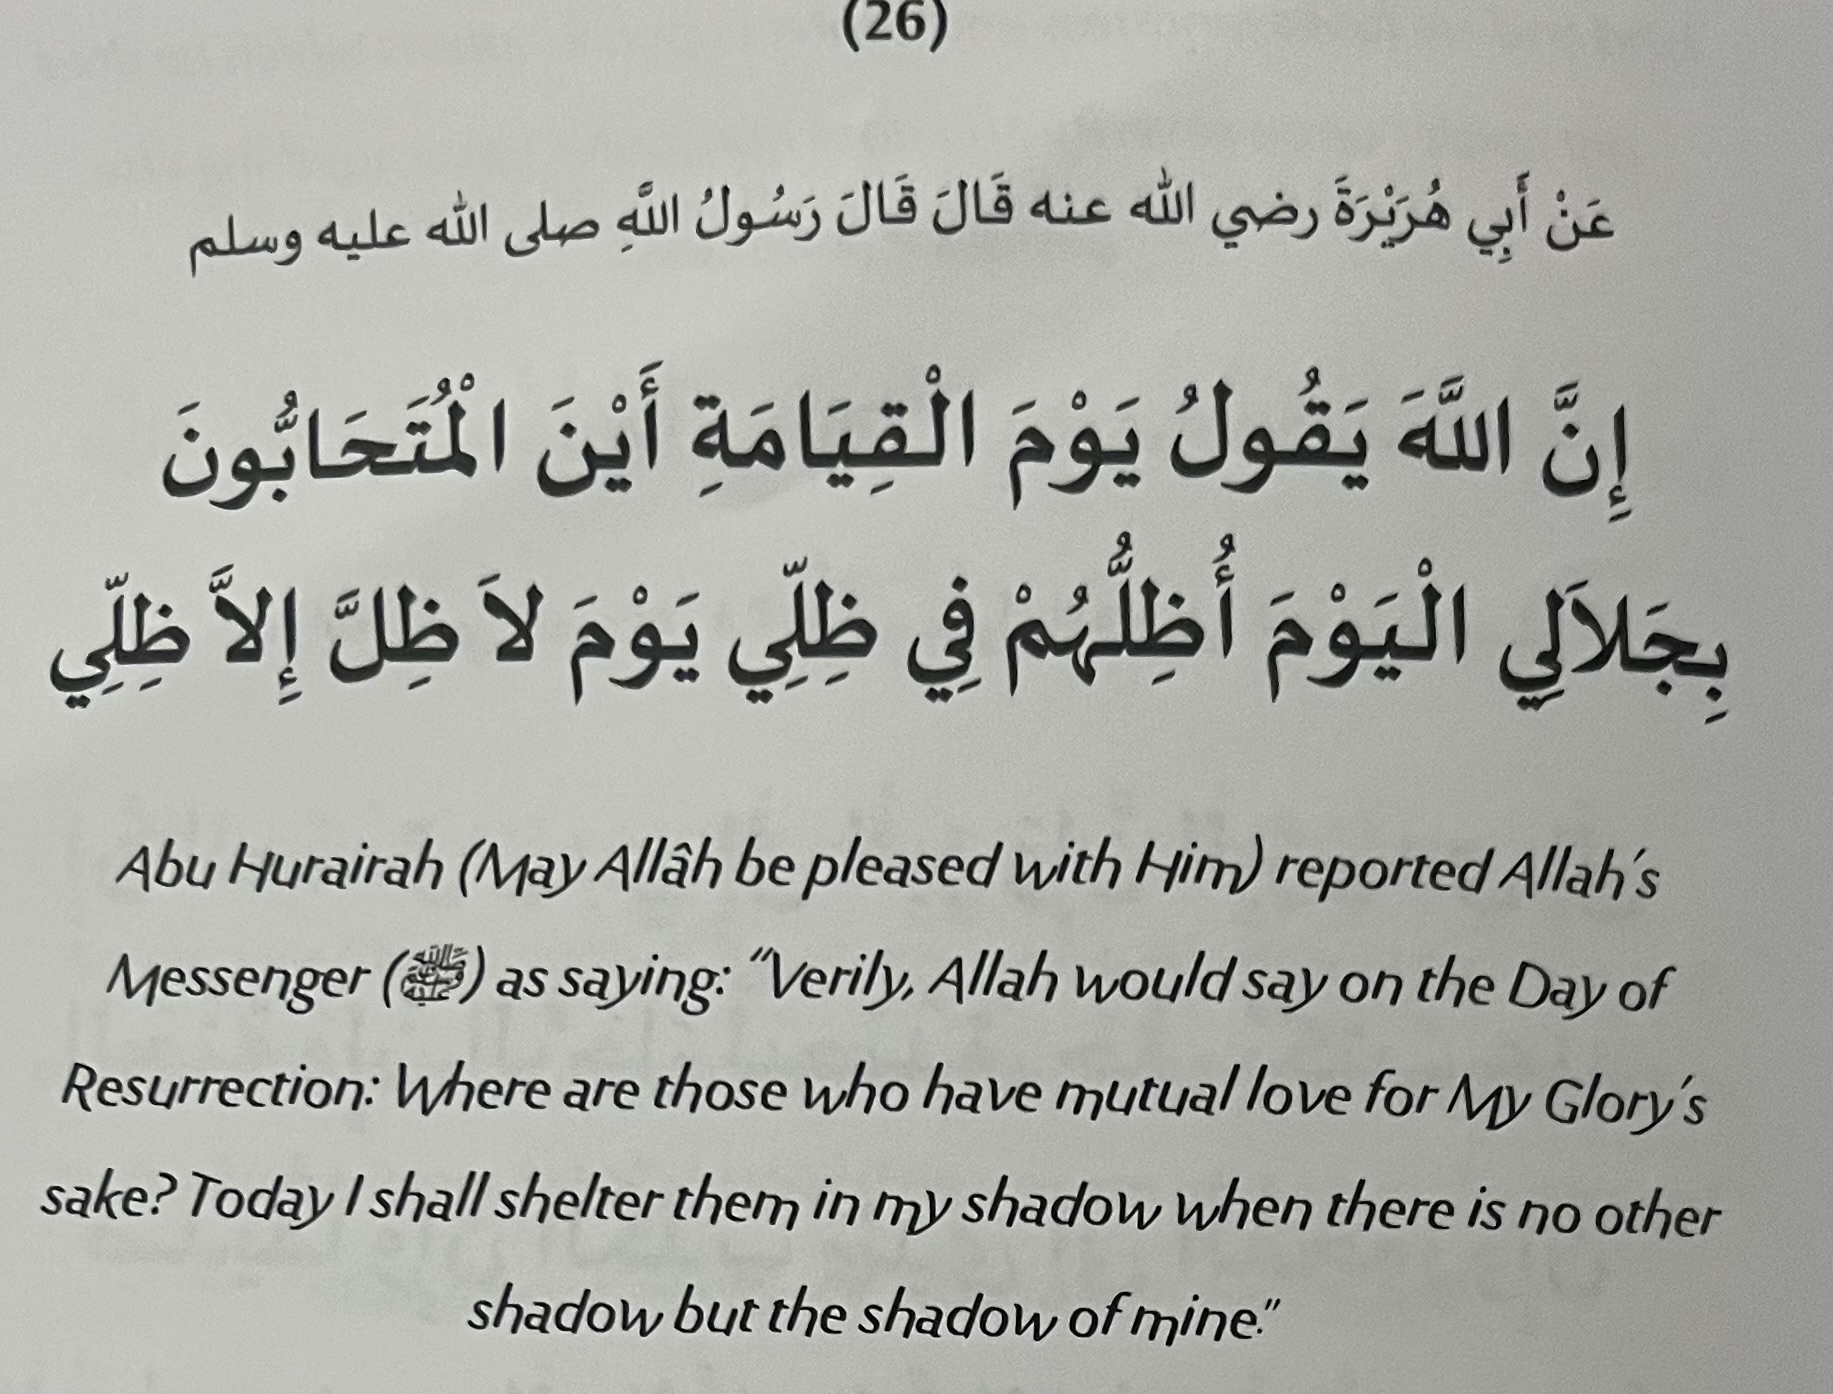 (26)
عَنْ أَبِي هُرَيْرَةَ رضي الله عنه قَالَ قَالَ رَسُولُ اللَّهِ صلى الله عليه وسلم
إِنَّ اللَّهَ يَقُولُ يَوْمَ الْقِيَامَةِ أَيْنَ الْمُتَحَابُّونَ
بِجَلاَلِي الْيَوْمَ أُظِلُّهُمْ فِي ظِلِّي يَوْمَ لاَ ظِلَّ إِلاَّ ظِلِّي
Abu Hurairah (May Allâh be pleased with Him) reported Allah's
Messenger (ﷺ) as saying: "Verily, Allah would say on the Day of
Resurrection: Where are those who have mutual love for My Glory's
sake? Today I shall shelter them in my shadow when there is no other
shadow but the shadow of mine."